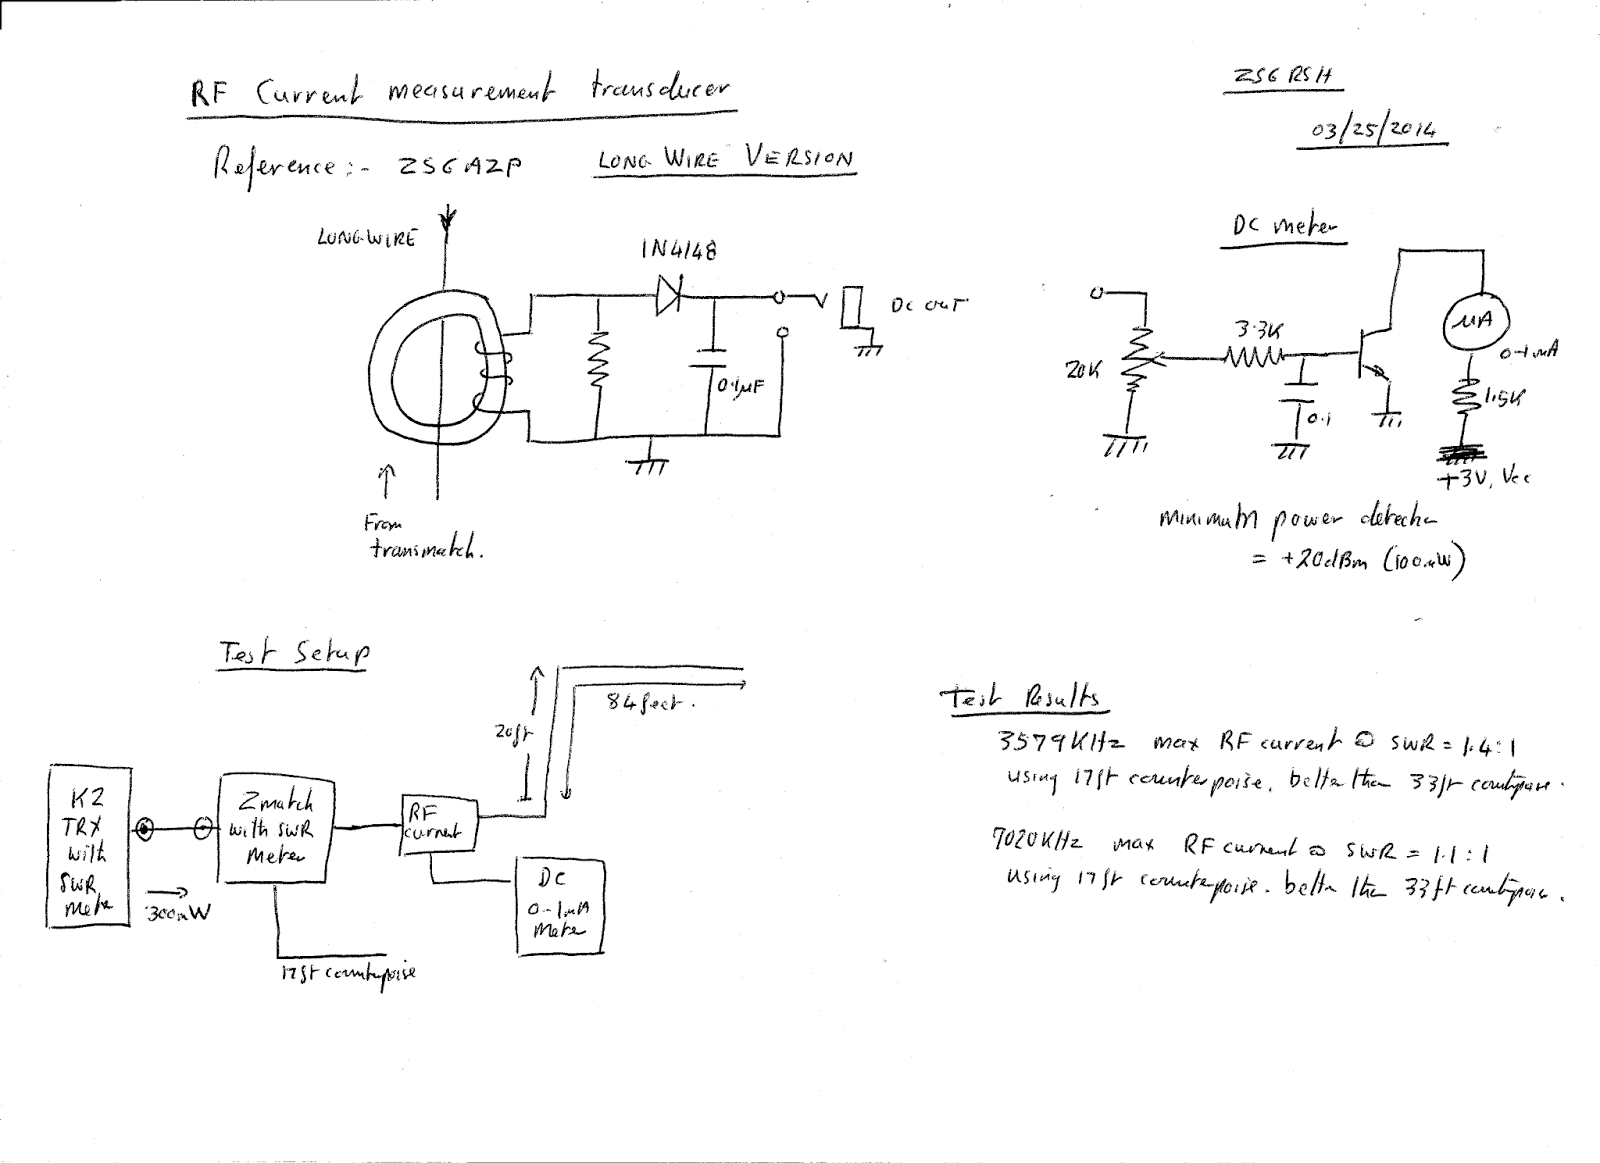 RF Current measurement transducer
ZS6RSH
03/25/2014
Reference:- ZS6AZP LONG WIRE VERSION
LONGWIRE
1N4148
DC out
0.1µF
From
transmatch.
DC meter
20K
3.3K
0.1
µA
0-1mA
1.5K
+3V, Vcc
Minimum power detectn
= +20dBm (100mW)
Test Setup
20ft
84feet.
K2
TRX
with
SWR
Meter
300mW
Zmatch
with SWR
Meter
17ft counterpoise
RF
current
DC
0-1mA
Meter
Test Results
3579KHz max RF current @ SWR = 1.4:1
using 17ft counterpoise. better than 33ft counterpoise.
7020KHz max RF current @ SWR = 1.1:1
using 17ft counterpoise. better than 33ft counterpoise.